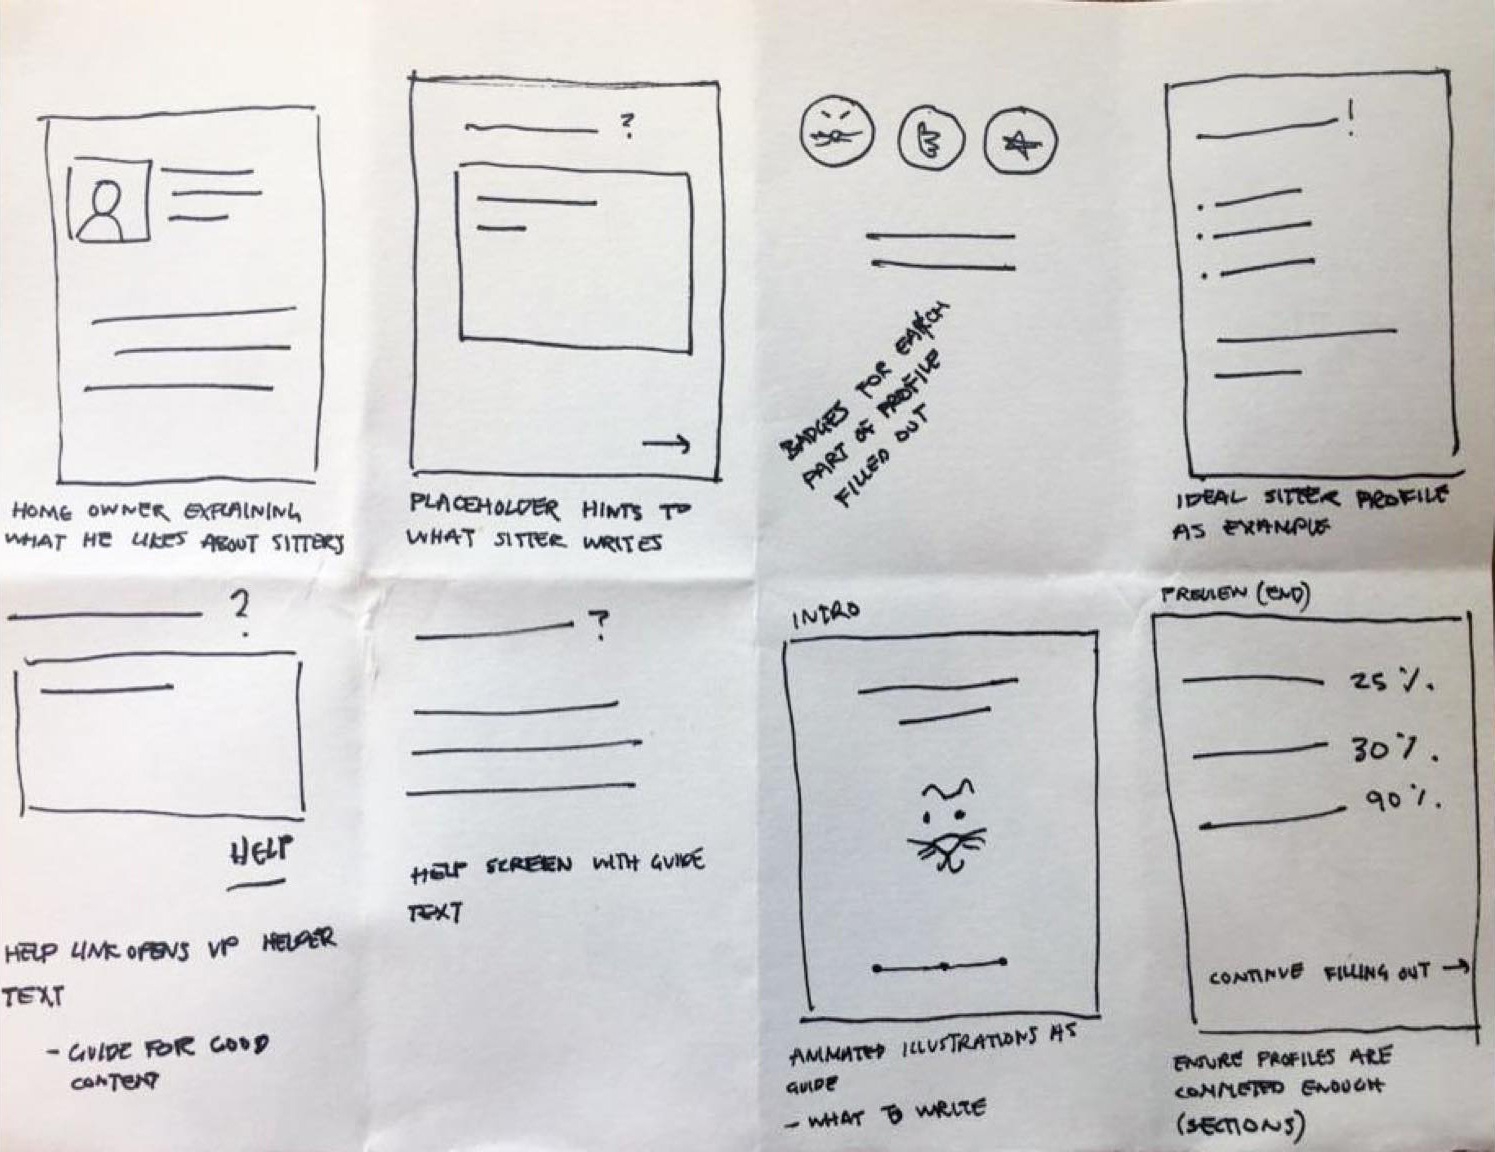 ?
!
HOME OWNER EXPLAINING
WHAT HE LIKES ABOUT SITTERS
PLACEHOLDER HINTS TO
WHAT SITTER WRITES
BADGES FOR EARCH
PART OF PROFILE
FILLED OUT
IDEAL SITTER PROFILE
AS EXAMPLE
?
HELP
HELP LINK OPENS UP HELPER
TEXT
- GUIDE FOR GOOD
CONTENT
?
HELP SCREEN WITH GUIDE
TEXT
INTRO
ANIMATED ILLUSTRATIONS AS
GUIDE
- WHAT TO WRITE
PREVIEW (END)
25%.
30%.
90%.
CONTINUE FILLING OUT →
ENSURE PROFILES ARE
COMPLETED ENOUGH
(SECTIONS)